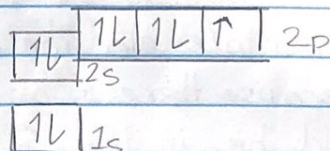 1L 1L 1 2p
1L 2s
1L 1s